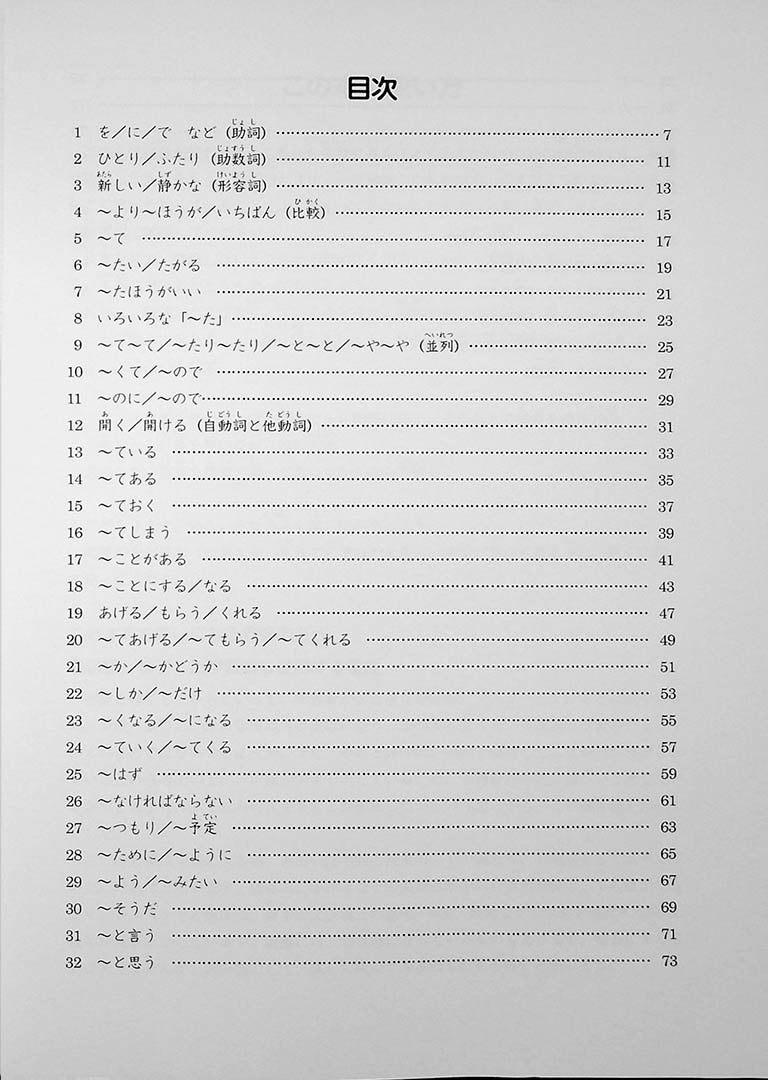 目次
1 を／に／で など（助詞） ………… 7
2 ひとり／ふたり（助数詞） ………… 11
3 新しい／静かな（形容詞） ………… 13
4 〜より〜ほうが／いちばん（比較） ………… 15
5 〜て ………… 17
6 〜たい／たがる ………… 19
7 〜たほうがいい ………… 21
8 いろいろな「〜た」 ………… 23
9 〜て〜て／〜たり〜たり／〜と〜と／〜や〜や（並列） ………… 25
10 〜くて／〜ので ………… 27
11 〜のに／〜ので ………… 29
12 開く／開ける（自動詞と他動詞） ………… 31
13 〜ている ………… 33
14 〜てある ………… 35
15 〜ておく ………… 37
16 〜てしまう ………… 39
17 〜ことがある ………… 41
18 〜ことにする／なる ………… 43
19 あげる／もらう／くれる ………… 47
20 〜てあげる／〜てもらう／〜てくれる ………… 49
21 〜か／〜かどうか ………… 51
22 〜しか／〜だけ ………… 53
23 〜くなる／〜になる ………… 55
24 〜ていく／〜てくる ………… 57
25 〜はず ………… 59
26 〜なければならない ………… 61
27 〜つもり／〜予定 ………… 63
28 〜ために／〜ように ………… 65
29 〜よう／〜みたい ………… 67
30 〜そうだ ………… 69
31 〜と言う ………… 71
32 〜と思う ………… 73